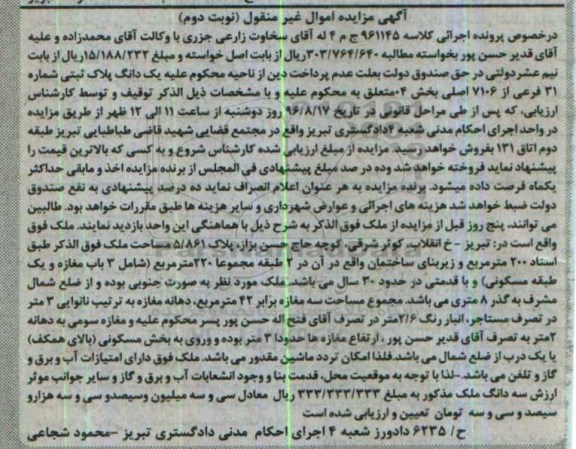 آگهی مزایده اموال غیر منقول (نوبت دوم)
درخصوص پرونده اجرائی کلاسه ۹۶۱۱۴۵ ج م ۴ له آقای سخاوت زارعی جزری با وکالت آقای محمدزاده و علیه
آقای قدیر حسن پور بخواسته مطالبه ۳۰۳/۷۶۴/۶۴۰ ریال از بابت اصل خواسته و مبلغ ۱۵/۱۸۸/۲۳۲ ریال از بابت
نیم عشر دولتی در حق صندوق دولت بعلت عدم پرداخت دین از ناحیه محکوم علیه یک دانگ پلاک ثبتی شماره
۳۱ فرعی از ۷۱۰۶ اصلی بخش ۴ متعلق به محکوم علیه و با مشخصات ذیل الذکر توقیف و توسط کارشناس
ارزیابی، که پس از طی مراحل قانونی در تاریخ ۹۶/۸/۱۷ روز دوشنبه از ساعت ۱۱ الی ۱۲ ظهر از طریق مزایده
در واحد اجرای احکام مدنی شعبه ۴ دادگستری تبریز واقع در مجتمع قضایی شهید قاضی طباطبایی تبریز طبقه
دوم اتاق ۱۳۱ بفروش خواهد رسید. مزایده از مبلغ ارزیابی شده کارشناس شروع و به کسی که بالاترین قیمت را
پیشنهاد نماید فروخته خواهد شد وده در صد مبلغ پیشنهادی فی المجلس از برنده مزایده اخذ و مابقی حداکثر
یکماه فرصت داده میشود. برنده مزایده به هر عنوان اعلام انصراف نماید ده درصد پیشنهادی به نفع صندوق
دولت ضبط خواهد شد هزینه های اجرائی و عوارض شهرداری و سایر هزینه ها طبق مقررات خواهد بود. طالبین
می توانند، پنج روز قبل از مزایده از ملک فوق الذکر به شرح ذیل با هماهنگی این واحد بازدید نمایند. ملک فوق
واقع است در: تبریز - خ انقلاب، کوثر شرقی، کوچه حاج حسن بزاز، پلاک ۵/۸۶۱ مساحت ملک فوق الذکر طبق
اسناد ۲۰۰ مترمربع و زیربنای ساختمان واقع در آن در ۲ طبقه مجموعا ۲۲۰ مترمربع (شامل ۳ باب مغازه و یک
طبقه مسکونی) و با قدمتی در حدود ۳۰ سال می باشد. ملک مورد نظر به صورت جنوبی بوده و از ضلع شمال
مشرف به گذر ۸ متری می باشد. مجموع مساحت سه مغازه برابر ۴۲ مترمربع، دهانه مغازه به ترتیب نانوایی ۳ متر
در تصرف مستاجر، انبار رنگ ۲/۶ متر در تصرف آقای فتح اله حسن پور پسر محکوم علیه و مغازه سومی به دهانه
۲ متر به تصرف آقای قدیر حسن پور، ارتفاع مغازه ها حدودا ۳ متر بوده و وروی به بخش مسکونی (بالای همکف)
یا یک درب از ضلع شمال می باشد. فلذا امکان تردد ماشین مقدور می باشد. ملک فوق دارای امتیازات آب و برق و
گاز و تلفن می باشد -لذا با توجه به موقعیت محل، قدمت بنا و وجود انشعابات آب و برق و گاز و سایر جوانب موثر
ارزش سه دانگ ملک مذکور به مبلغ ۳۳۳/۳۳۳/۳۳۳ ریال معادل سی و سه میلیون وسیصدو سی و سه هزارو
سیصد و سی و سه تومان تعیین و ارزیابی شده است
ح/ ۶۲۳۵ دادورز شعبه ۴ اجرای احکام مدنی دادگستری تبریز -محمود شجاعی